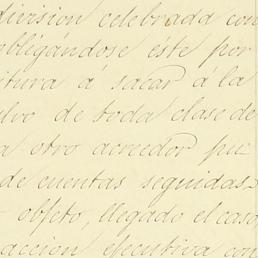 división celebrada con
obligándose éste por
itura á sacar á la
lvo de toda clase de
a otro acreedor pu
de cuentas seguidas
objeto, llegado el caso,
acción ejecutiva con